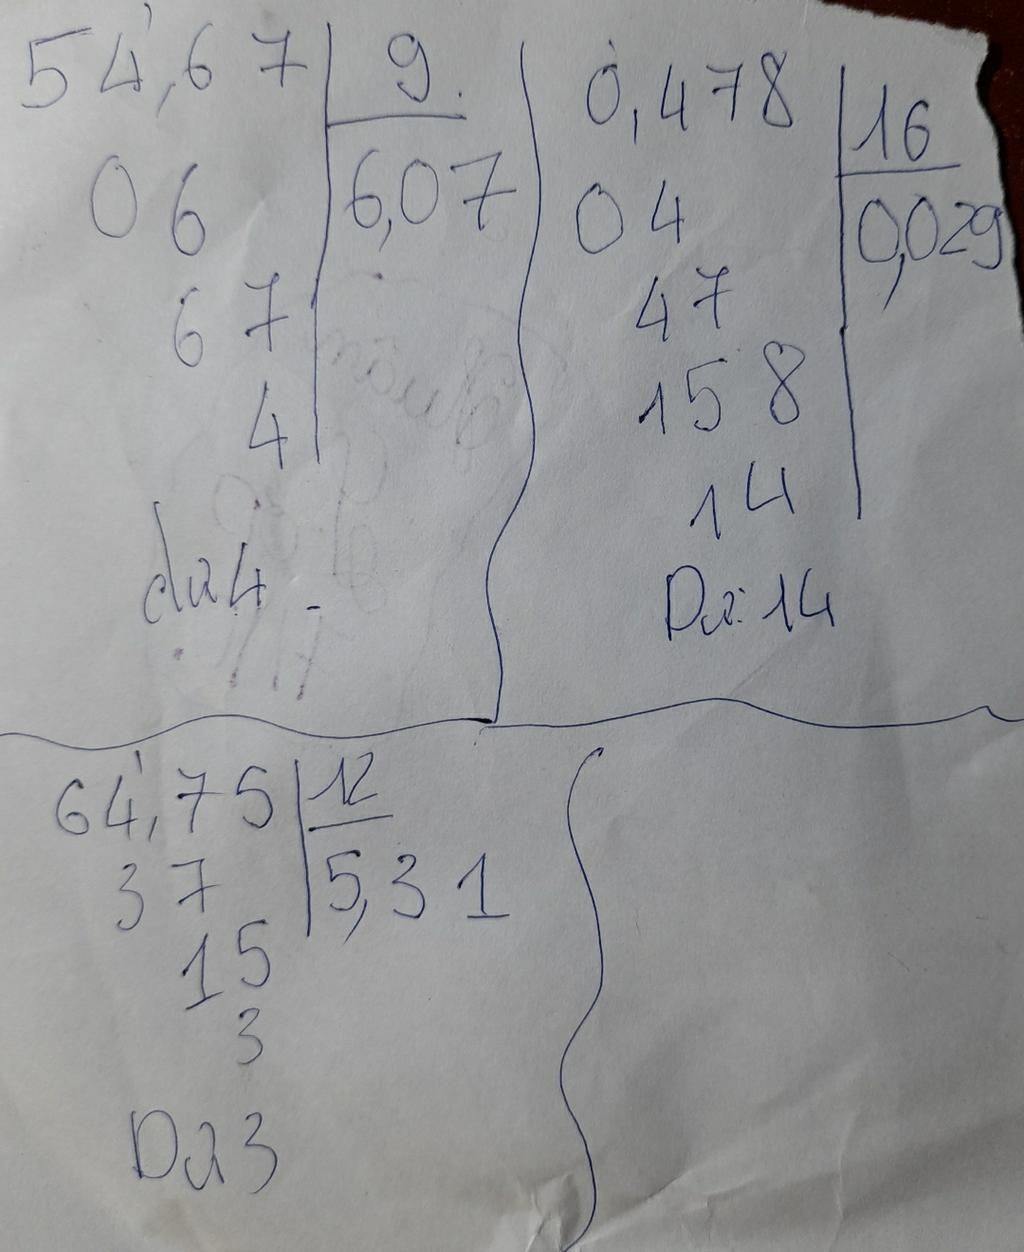 54,67 9
06 6,07
67
4
dư 4
0,478 16
04 0,029
47
158
14
Dư: 14
64,75 12
37 5,31
15
3
Dư 3